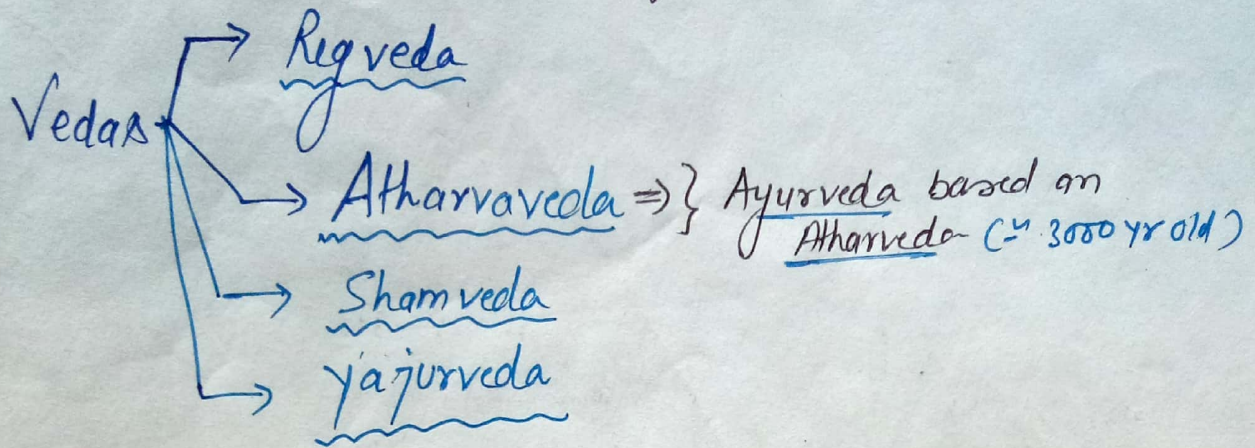 Regveda
Vedas
Atharvaveda ⇒} Ayurveda based on
Atharveda (≃ 3000 yr old)
Shamveda
yajurveda